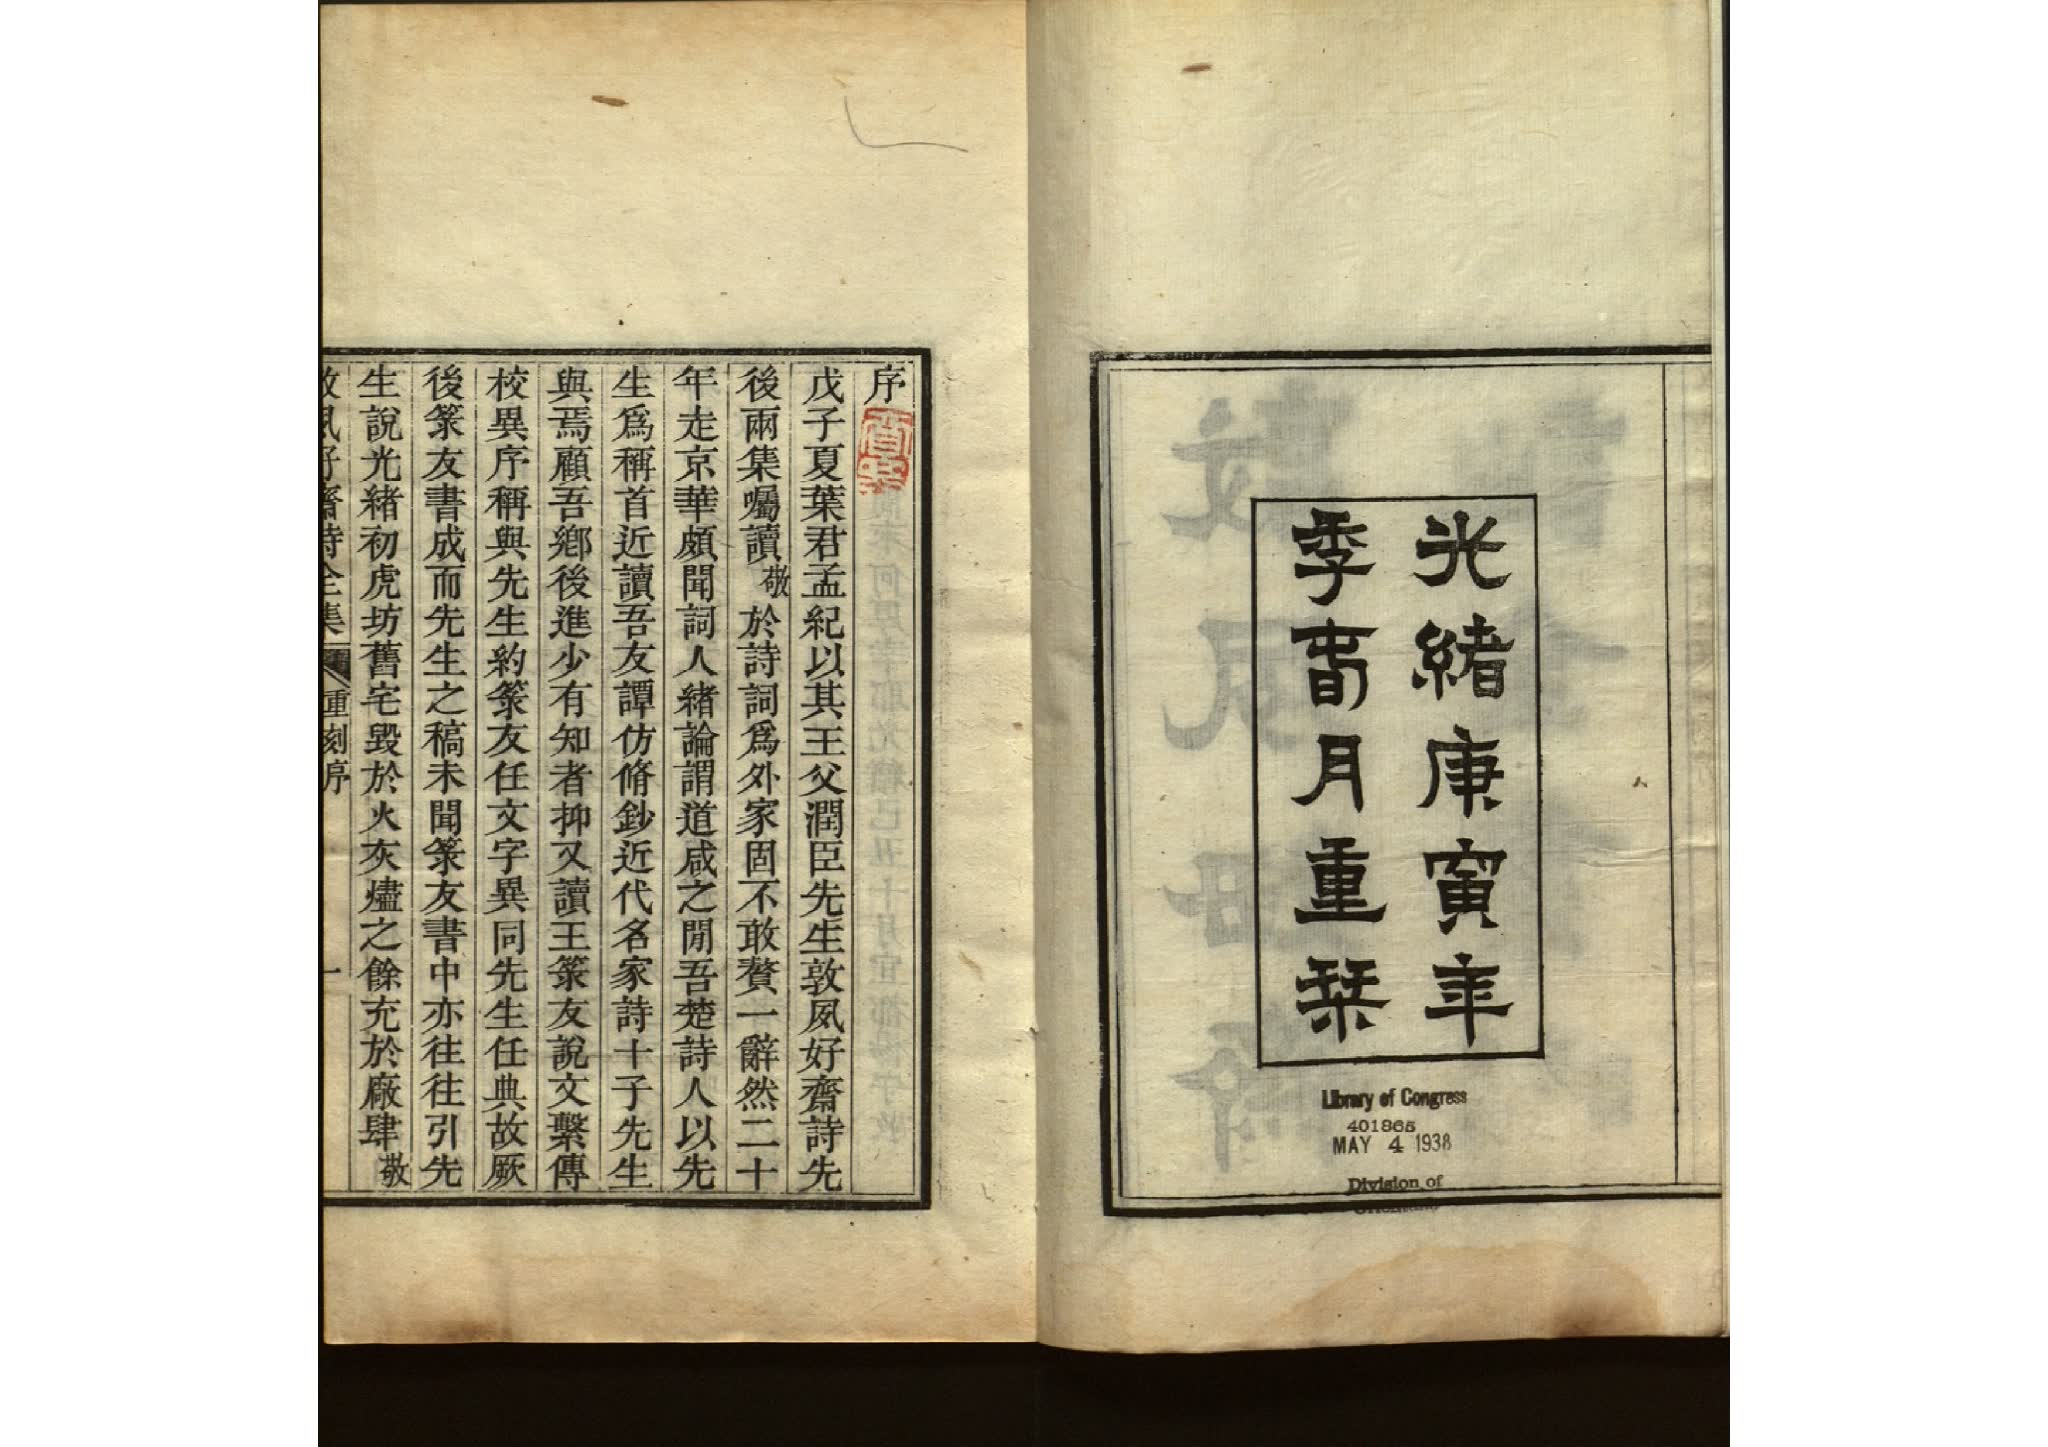 光緒庚寅年
季春月重栞
Library of Congress
401865
MAY 4 1938
Division of
序
戊子夏葉君孟紀以其王父潤臣先生敦夙好齋詩先
後兩集囑讀敬於詩詞爲外家固不敢贅一辭然二十
年走京華頗聞詞人緒論謂道咸之閒吾楚詩人以先
生爲稱首近讀吾友譚仿脩鈔近代名家詩十子先生
與焉顧吾鄉後進少有知者抑又讀王箓友說文繫傳
校異序稱與先生約箓友任文字異同先生任典故厥
後箓友書成而先生之稿未聞箓友書中亦往往引先
生說光緒初虎坊舊宅毀於火灰燼之餘充於廠肆敬
敦夙好齋詩全集 重刻序 一